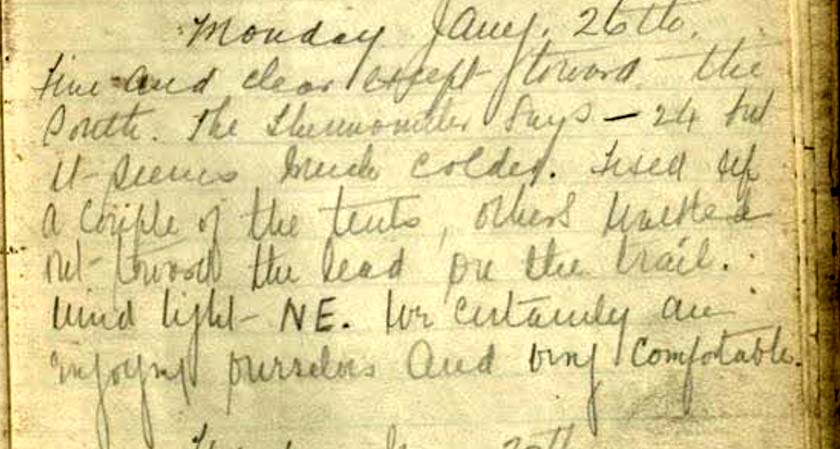 Monday Jany. 26th.
Fine and clear except toward the
South. The thermometer says - 24 but
it seems much colder. Fixed up
a couple of the tents, others walked
out toward the lead on the trail.
Wind light - NE. We certainly are
enjoying ourselves and very comfortable.